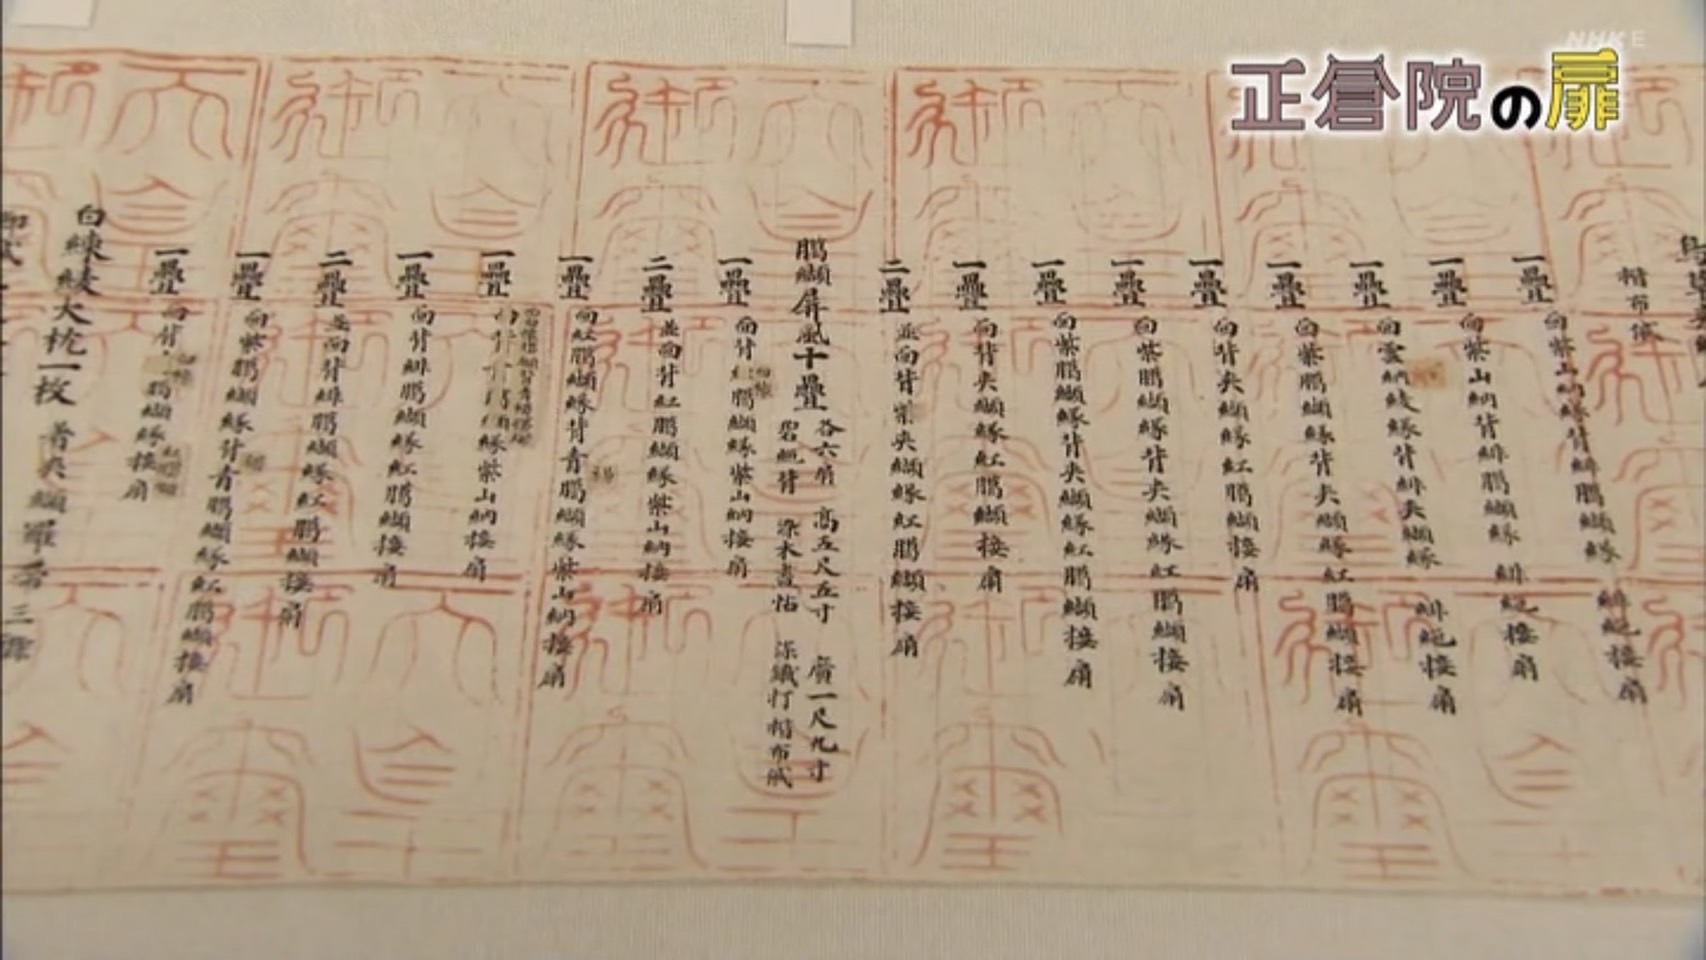 NHK E
正倉院の扉
揩布帒
一疊 面紫山納緣背緋臈纈緣 緋絁接扇
一疊 面紫山納背緋臈纈緣 緋絁接扇
一疊 面雲納綾緣背緋夾纈緣 緋絁接扇
一疊 面紫臈纈緣背夾纈緣紅臈纈接扇
一疊 面背夾纈緣紅臈纈接扇
一疊 面紫臈纈緣背夾纈緣紅臈纈接扇
一疊 面紫臈纈緣背夾纈緣紅臈纈接扇
一疊 面背夾纈緣紅臈纈接扇
二疊 並面背紫夾纈緣紅臈纈接扇
臈纈屏風十疊 各六扇 高五尺五寸 廣一尺九寸
碧絁背 染木畫帖 漆鐵打 揩布帒
一疊 面背 臈纈緣紫山納接扇
二疊 並面背紅臈纈緣紫山納接扇
一疊 面紅臈纈緣背青臈纈緣紫山納接扇
一疊 緣紫山納接扇
一疊 面背緋臈纈緣紅臈纈接扇
二疊 並面背緋臈纈緣紅臈纈接扇
一疊 面紫臈纈緣背青臈纈緣紅臈纈接扇
一疊 面背 臈纈緣接扇
白練綾大枕一枚 着夾纈羅 三
天皇御璽